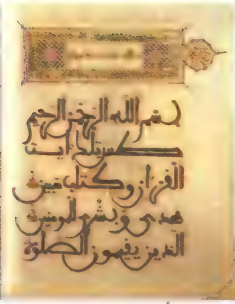 بسم الله الرحمن الرحيم
طس تلك آيت
القرآن وكتاب مبين
هدى وبشرى للمؤمنين
الذين يقيمون الصلوة